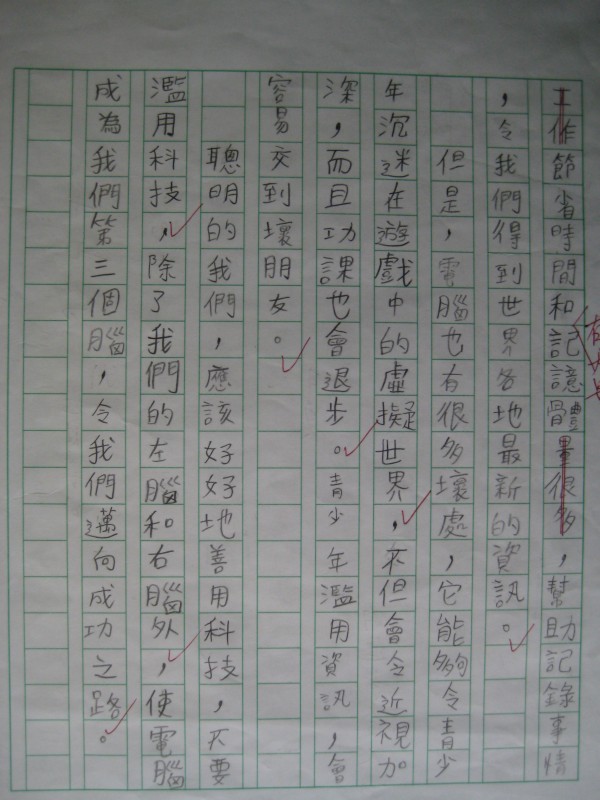 工作節省時間和記憶體量很多，幫助記錄事情
，令我們得到世界各地最新的資訊。
但是，電腦也有很多壞處，它能夠令青少
年沉迷在遊戲中的虛擬世界，不但會令近視加
深，而且功課也會退步。青少年濫用資訊，會
容易交到壞朋友。
聰明的我們，應該好好地善用科技，不要
濫用科技，除了我們的左腦和右腦外，使電腦
成為我們第三個腦，令我們邁向成功之路。